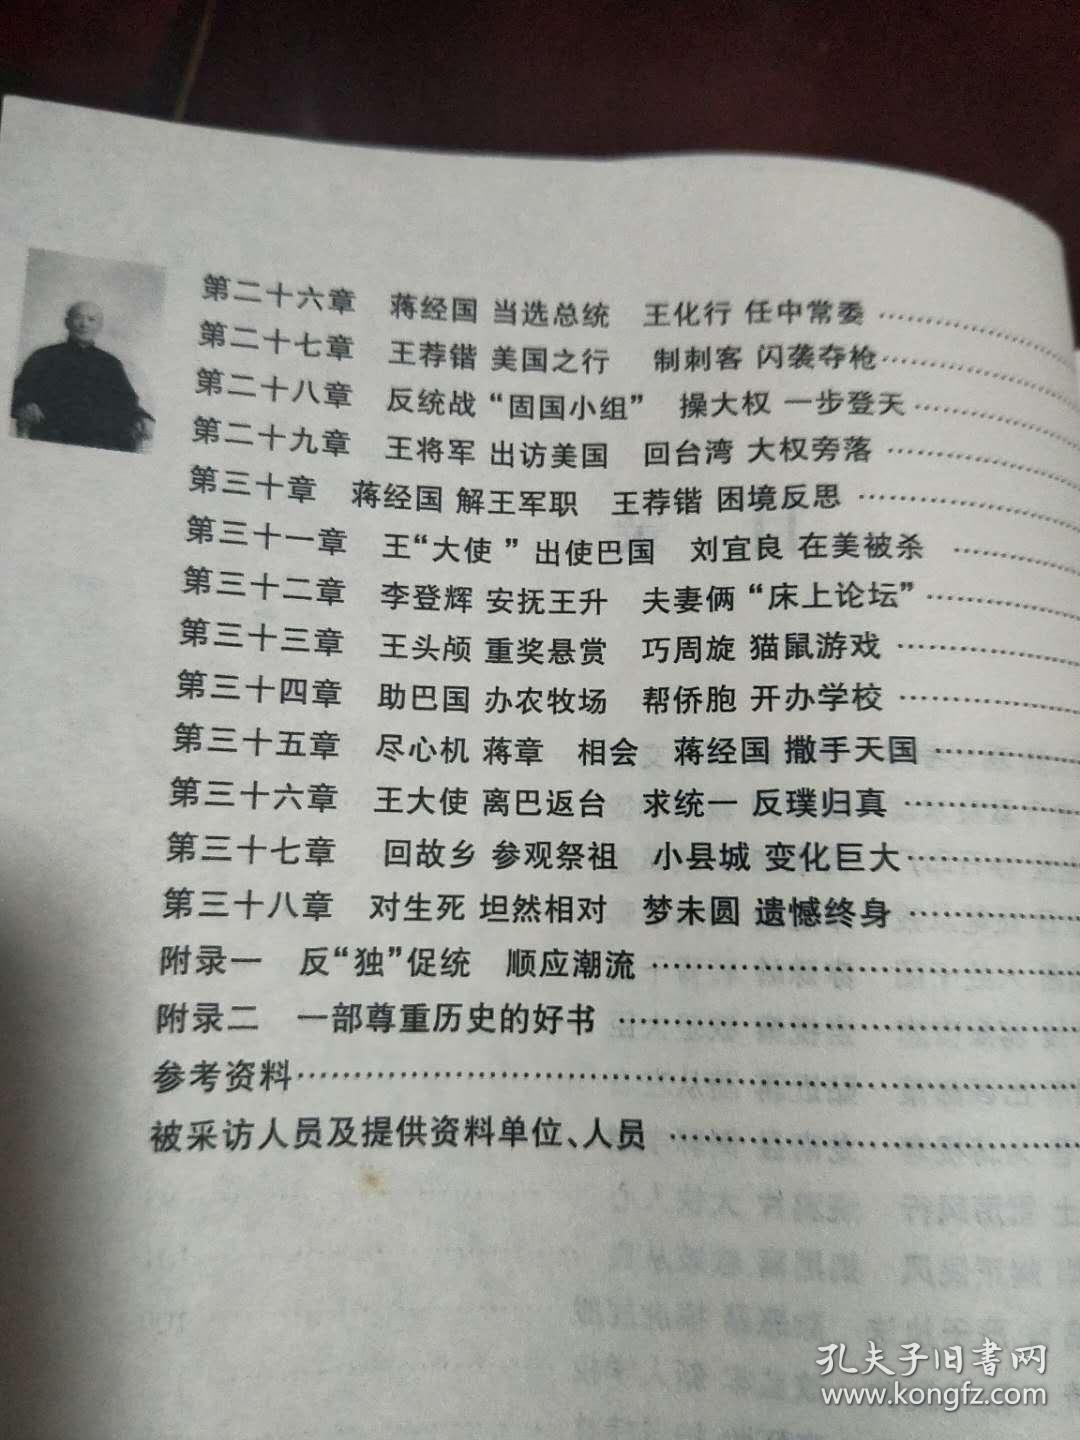 第二十六章 蒋经国 当选总统 王化行 任中常委 ……………
第二十七章 王荐锴 美国之行 制刺客 闪袭夺枪……………
第二十八章 反统战“固国小组” 操大权 一步登天……………
第二十九章 王将军 出访美国 回台湾 大权旁落 ……………
第三十章 蒋经国 解王军职 王荐锴 困境反思 ……………
第三十一章 王“大使 ” 出使巴国 刘宜良 在美被杀 ……………
第三十二章 李登辉 安抚王升 夫妻俩 “床上论坛”……………
第三十三章 王头颅 重奖悬赏 巧周旋 猫鼠游戏 ……………
第三十四章 助巴国 办农牧场 帮侨胞 开办学校 ……………
第三十五章 尽心机 蒋章 相会 蒋经国 撒手天国 ……………
第三十六章 王大使 离巴返台 求统一 反璞归真 ……………
第三十七章 回故乡 参观祭祖 小县城 变化巨大……………
第三十八章 对生死 坦然相对 梦未圆 遗憾终身 ……………
附录一 反“独”促统 顺应潮流 ……………
附录二 一部尊重历史的好书 ……………
参考资料……………
被采访人员及提供资料单位、人员 ……………
孔夫子旧书网
www.kongfz.com